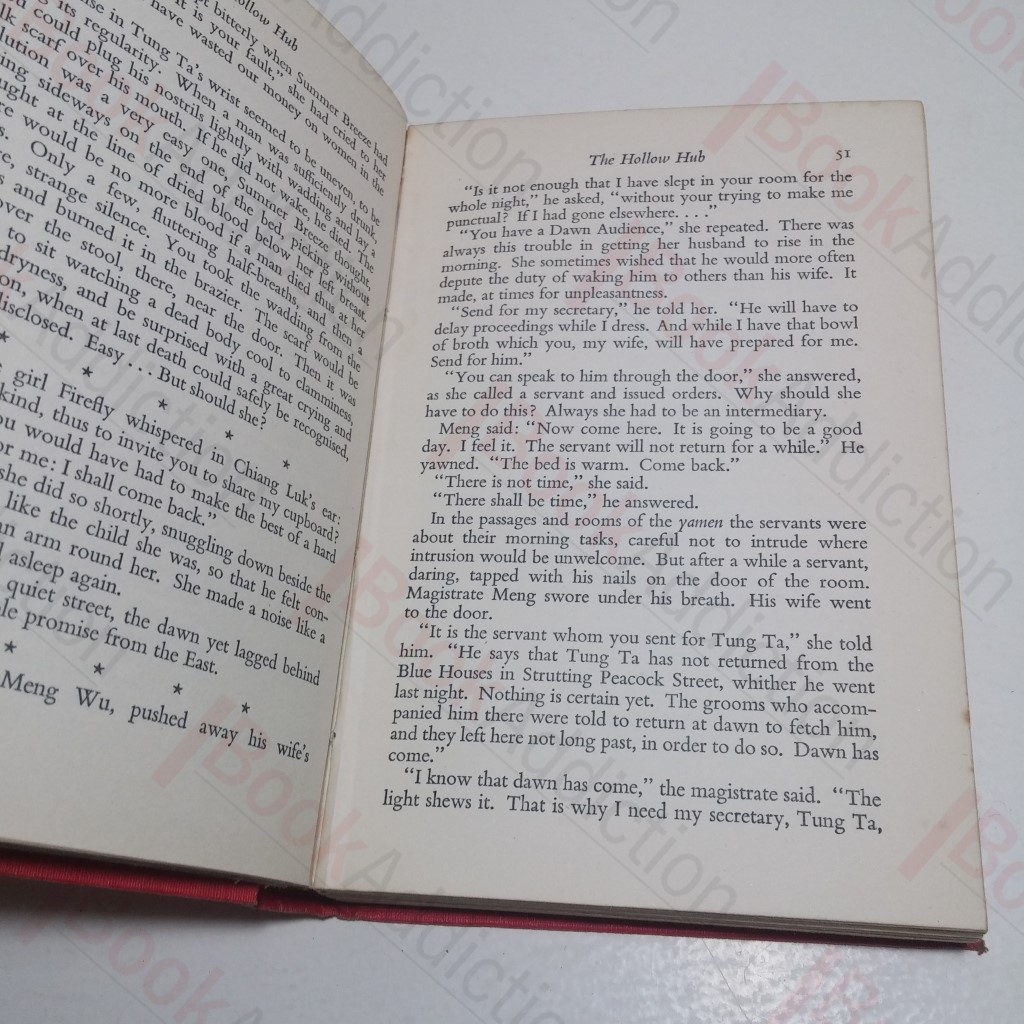 Hollow Hub
bitterly when Summer Breeze had
it is your fault," she had cried to her
have wasted our money on women in the
in Tung Ta's wrist seemed to be uneven, to
its regularity. When a man was sufficiently drunk,
could plug his nostrils lightly with wadding and lay a
scarf over his mouth. If he did not wake, he died. The
was a very easy one, Summer Breeze thought,
sideways on the end of the bed, picking without
at the line of dried blood below her left breast.
would be no more blood if a man died thus at her
Only a few, fluttering half-breaths, and then a
strange silence. You took the wadding from the
and burned it in the brazier. The scarf would be
over the stool, there, near the door. Then it was
to sit watching a dead body cool to clamminess,
dryness, and be surprised with a great crying and
when at last death could safely be recognised,
disclosed. Easy . . . But should she?
* * * * *
girl Firefly whispered in Chiang Luk's ear:
kind, thus to invite you to share my cupboard?
would have had to make the best of a hard
for me: I shall come back."
she did so shortly, snuggling down beside the
like the child she was, so that he felt con-
arm round her. She made a noise like a
asleep again.
quiet street, the dawn yet lagged behind
promise from the East.
* * * *
Meng Wu, pushed away his wife's
The Hollow Hub 51
"Is it not enough that I have slept in your room for the
whole night," he asked, "without your trying to make me
punctual? If I had gone elsewhere. . . ."
"You have a Dawn Audience," she repeated. There was
always this trouble in getting her husband to rise in the
morning. She sometimes wished that he would more often
depute the duty of waking him to others than his wife. It
made, at times for unpleasantness.
"Send for my secretary," he told her. "He will have to
delay proceedings while I dress. And while I have that bowl
of broth which you, my wife, will have prepared for me.
Send for him."
"You can speak to him through the door," she answered,
as she called a servant and issued orders. Why should she
have to do this? Always she had to be an intermediary.
Meng said: "Now come here. It is going to be a good
day. I feel it. The servant will not return for a while." He
yawned. "The bed is warm. Come back."
"There is not time," she said.
"There shall be time," he answered.
In the passages and rooms of the yamen the servants were
about their morning tasks, careful not to intrude where
intrusion would be unwelcome. But after a while a servant,
daring, tapped with his nails on the door of the room.
Magistrate Meng swore under his breath. His wife went
to the door.
"It is the servant whom you sent for Tung Ta," she told
him. "He says that Tung Ta has not returned from the
Blue Houses in Strutting Peacock Street, whither he went
last night. Nothing is certain yet. The grooms who accom-
panied him there were told to return at dawn to fetch him,
and they left here not long past, in order to do so. Dawn has
come."
"I know that dawn has come," the magistrate said. "The
light shews it. That is why I need my secretary, Tung Ta,